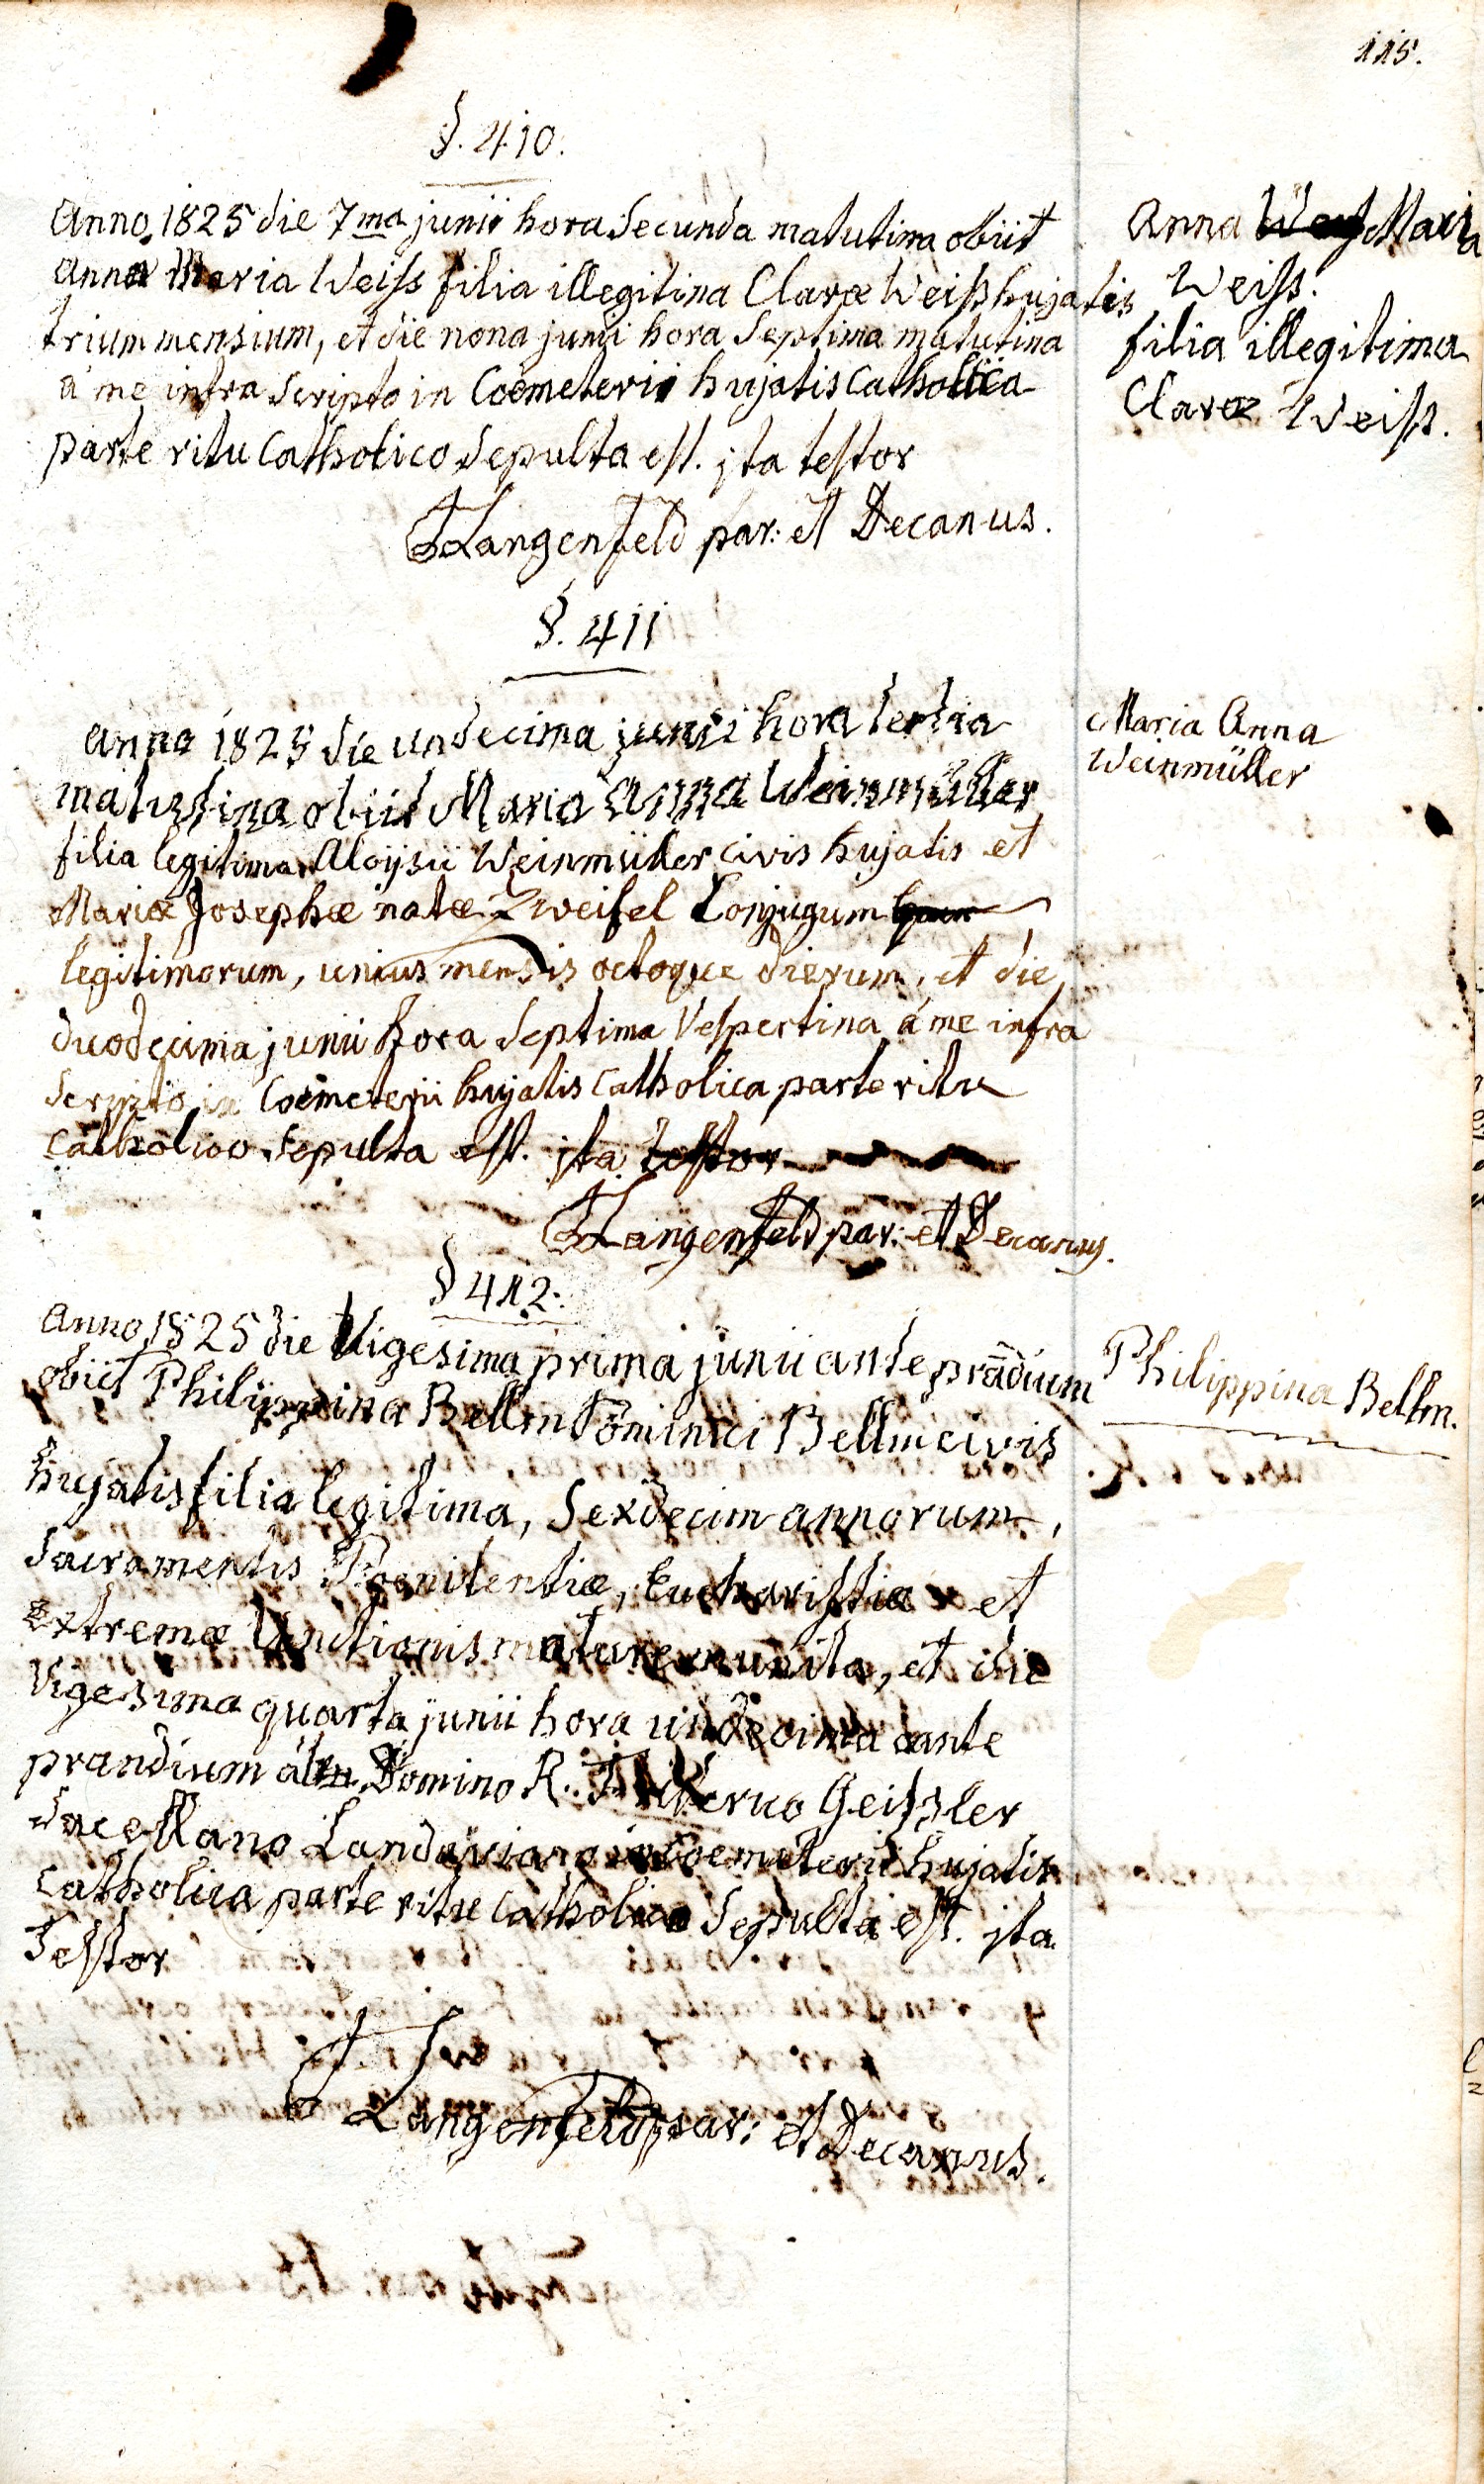 115.
§. 410.
Anno 1825 die 7ma junii hora secunda matutina obiit
Anna Maria Weiss filia illegitima Claræ Weiß hujatis
trium mensium, et die nona junii hora septima matutina
à me infra scripto in Coemeterii hujatis catholica
parte ritu Catholico sepulta est. ita testor
Langenfeld par: et Decanus.
Anna Maria
Weiss.
filia illegitima
Claræ Weiss.
§. 411
Anno 1825 die undecima junii hora tertia
matutina obiit Maria Anna Weinmüller
filia legitima Aloÿsii Weinmüller civis hujatis et
Mariæ Josephæ natæ Zweifel Conjugum
legitimorum, unius mensis octoque dierum, et die
duodecima junii hora septima Vespertina à me infra
scripto in Coemeterii hujatis catholica parte ritu
catholico sepulta est. ita testor
Langenfeld par: et Decanus.
Maria Anna
Weinmüller
§ 412.
Anno 1825 die Vigesima prima junii ante prãdium
obiit Philippina Bellm Dominici Bellm civis
hujatis filia legitima, sexdecim annorum,
sacramentis Poenitentiæ, Eucharistiæ et
extremæ Unctionis mature munita, et die
Vigesima quarta junii hora undecima ante
prandium à Domino R. Geiszler
sacellano Landaviano in Coemeterii hujatis
catholica parte ritu catholico sepulta est. ita
Testor
Langenfeld par: et Decanus.
Philippina Bellm.